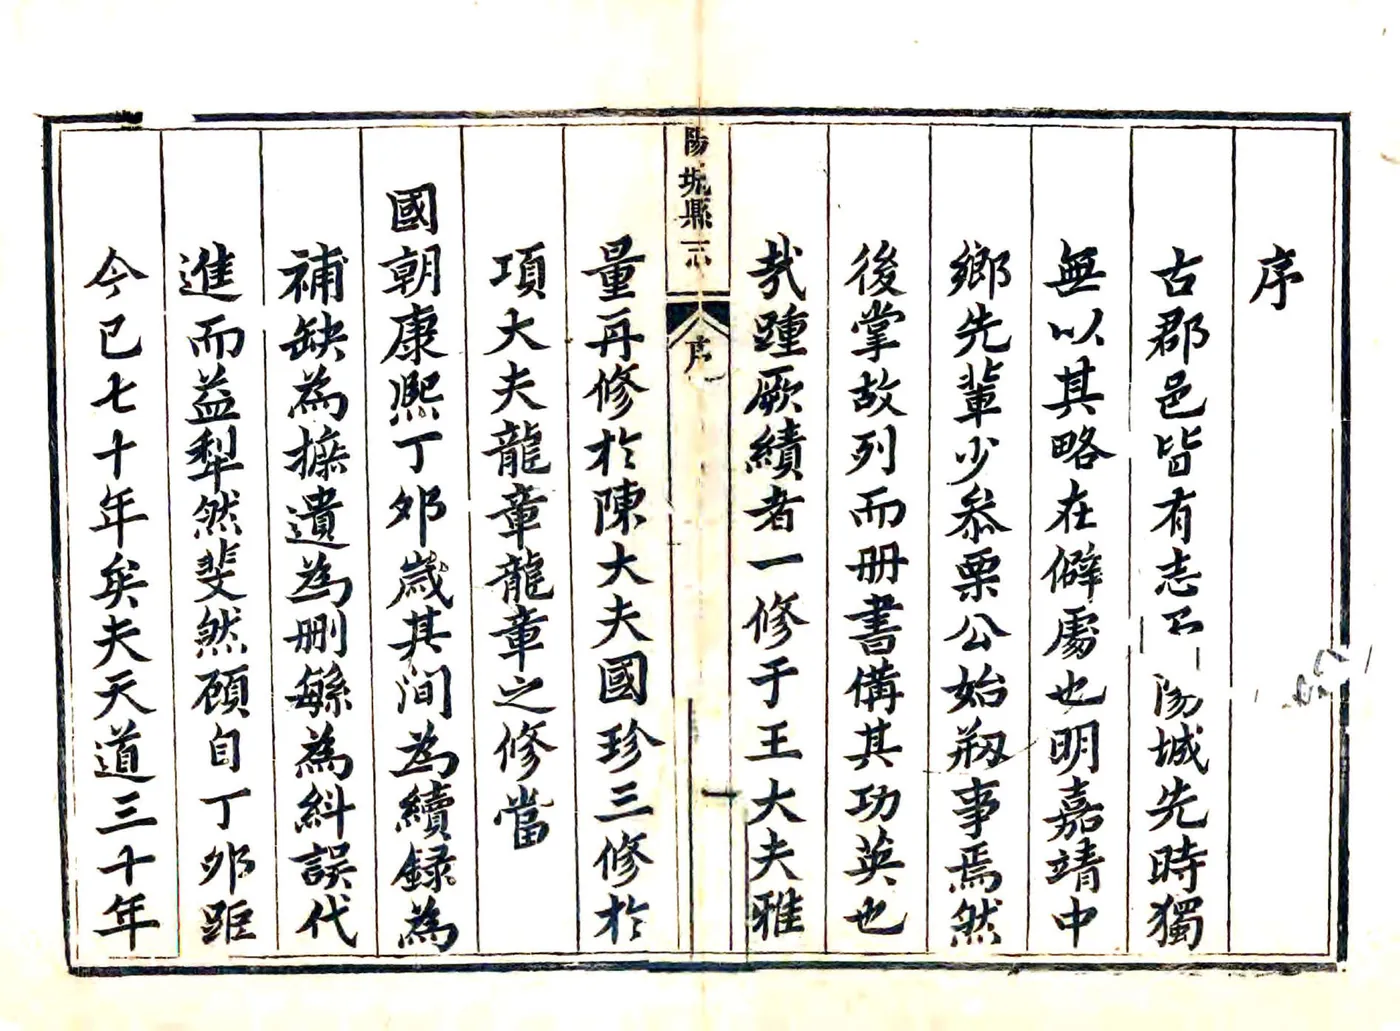 序
古郡邑皆有志而陽城先時獨
無以其略在僻處也明嘉靖中
鄉先輩少叅栗公始剏事焉然
後掌故列而冊書備其功英也
哉踵厥績者一修于王大夫雅
陽城縣志
序
一
量再修於陳大夫國珍三修於
項大夫龍章龍章之修當
國朝康熙丁卯歲其間為續録為
補缺為摭遺為刪繇為糾誤代
進而益犁然斐然顧自丁卯距
今已七十年矣夫天道三十年